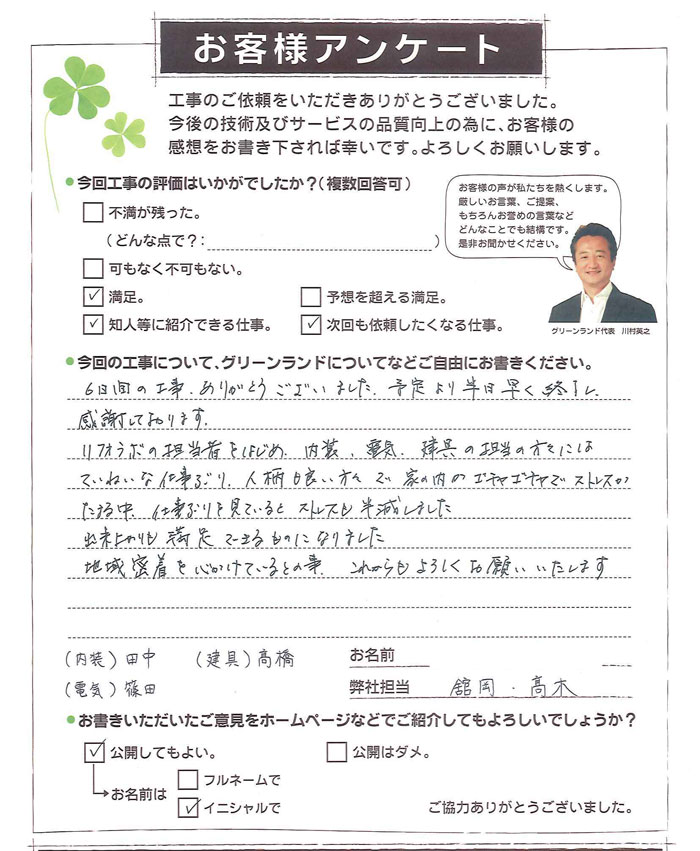 お客様アンケート
工事のご依頼をいただきありがとうございました。
今後の技術及びサービスの品質向上の為に、お客様の
感想をお書き下されば幸いです。よろしくお願いします。
●今回工事の評価はいかがでしたか？(複数回答可)
□不満が残った。
(どんな点で？: )
□可もなく不可もない。
☑満足。 □予想を超える満足。
☑知人等に紹介できる仕事。 ☑次回も依頼したくなる仕事。
お客様の声が私たちを熱くします。
厳しいお言葉、ご提案、
もちろんお誉めの言葉など
どんなことでも結構です。
是非お聞かせください。
グリーンランド代表 川村英之
●今回の工事について、グリーンランドについてなどご自由にお書きください。
6日間の工事、ありがとうございました。予定より半日早く終了し、
感謝しております。
リフォラボの担当者をはじめ、内装、電気、建具の担当の方々には
ていねいな仕事ぶり、人柄も良い方々で家の内のゴチャゴチャでストレスが
たまる中、仕事ぶりを見ているとストレスも半減しました
出来上がりも満足できるものになりました
地域密着を心がけているとの事、これからもよろしくお願いいたします
(内装)田中 (建具)髙橋
(電気)篠田
お名前
弊社担当 舘岡・髙木
●お書きいただいたご意見をホームページなどでご紹介してもよろしいでしょうか？
☑公開してもよい。 □公開はダメ。
→お名前は □フルネームで
☑イニシャルで
ご協力ありがとうございました。